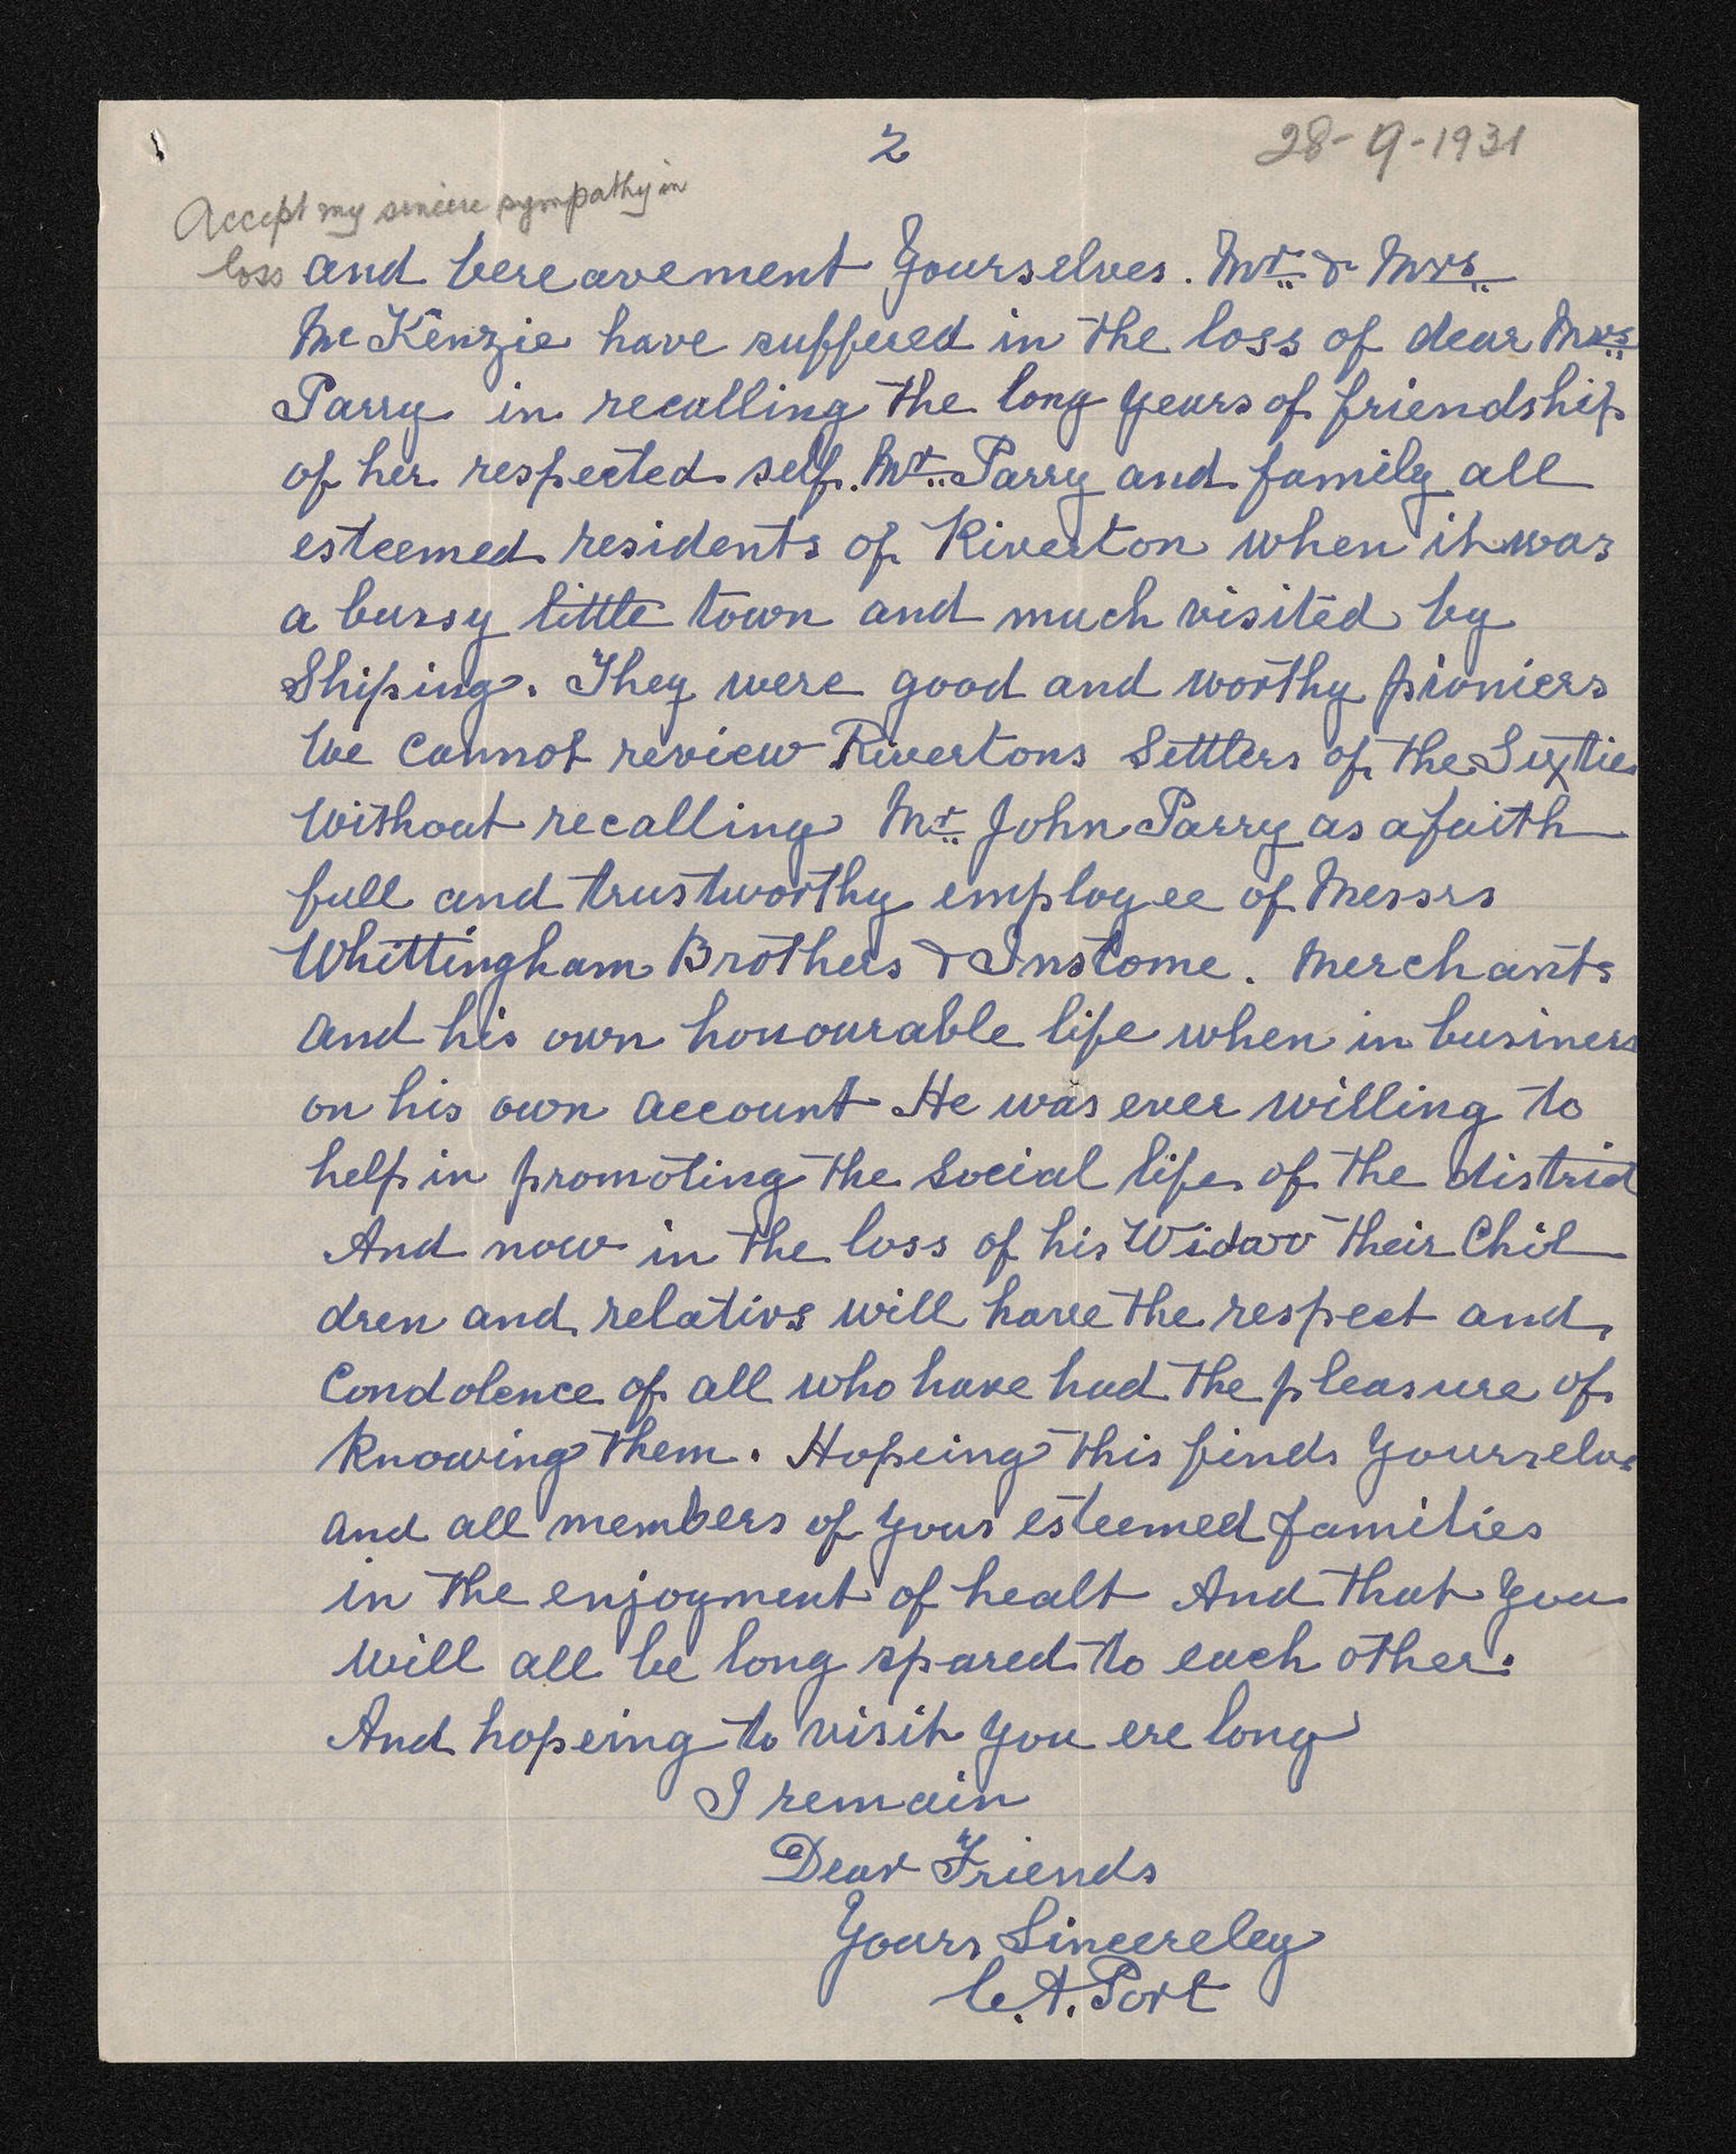 2
28-9-1931
Accept my sincere sympathy in
loss and bereavement Yourselves. Mr & Mrs
McKenzie have suffered in the loss of dear Mrs
Parry in recalling the long years of friendship
of her respected self. Mr Parry and family all
esteemed residents of Riverton when it was
a bussy little town and much visited by
Shiping. They were good and worthy pioniers
We Cannot review Rivertons Settlers of the Sixties
Without recalling Mr John Parry as a faith
full and trustworthy employee of Messrs
Whittingham Brothers & Instome. Merchants
and his own honourable life when in business
on his own account He was ever willing to
help in promoting the Social life of the district
And now in the loss of his Widow their Chil
dren and relativs will have the respect and
Condolence of all who have had the pleasure of
Knowing them. Hopeing this finds Yourselvs
and all members of your esteemed families
in the enjoyment of healt And that You
will all be long spared to each other.
And hopeing to visit you ere long
I remain
Dear Friends
Yours Sincereley
C. A. Port